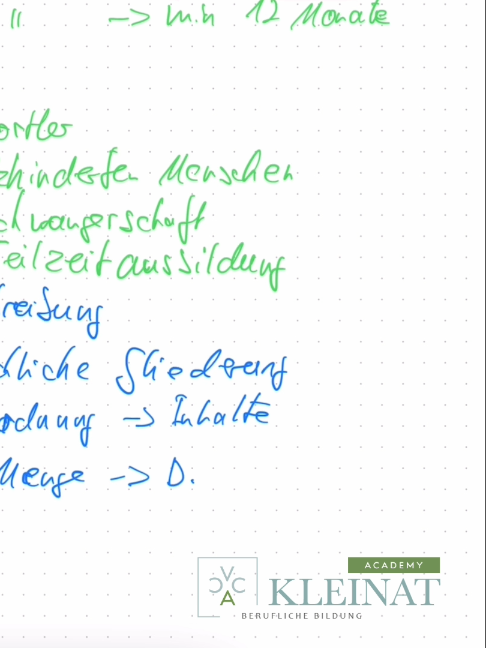 " -> min 12 Monate
ortler
ehinderten Menschen
chwangerschaft
eilzeitausbildung
reibung
chliche Gliederung
ordnung -> Inhalte
Menge -> D.
ACADEMY
CVCA
KLEINAT
BERUFLICHE BILDUNG